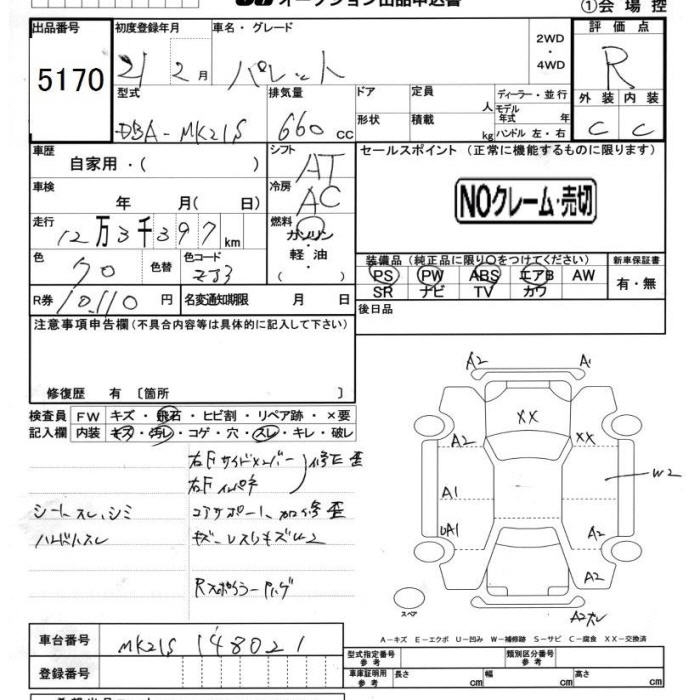 オークション出品申込書 ①会場控
出品番号 初度登録年月 車名・グレード 2WD・4WD 評価点
5170 21 2月 パレット R
型式 排気量 ドア 定員 人 ディーラー・並行 外装 内装
モデル年式 年
DBA-MK21S 660 cc 形状 積載 kg ハンドル 左・右 C C
車歴 自家用・( ) シフト AT セールスポイント (正常に機能するものに限ります)
車検 年 月( 日) 冷房 AC NOクレーム・売切
走行 12万3千397km 燃料 ガソリン・軽油・( )
色 クロ 色替 色コード ZJ3 装備品 (純正品に限り○をつけてください) 新車保証書
PS PW ABS エアB AW 有・無
SR ナビ TV カワ
R券 10,110円 名変通知期限 月 日 後日品
注意事項申告欄(不具合内容等は具体的に記入して下さい)
修復歴 有 〔箇所 〕
検査員 FW キズ・飛石・ヒビ割・リペア跡・×要
記入欄 内装 キズ・汚レ・コゲ・穴・スレ・キレ・破レ
右Fサイドメンバー 修正 歪
右Fインパネ
シートスレ,シミ コアサポート 加修 歪
ハンドルスレ
A2 A1
XX
A2 XX
A1 W2
UA1 A2
A2
スペア A2スレ
A-キズ E-エクボ U-凹み W-補修跡 S-サビ C-腐食 XX-交換済
車台番号 MK21S 148021
登録番号
型式指定番号 参考 類別区分番号 参考
車庫証明用 参考 長さ cm 幅 cm 高さ cm